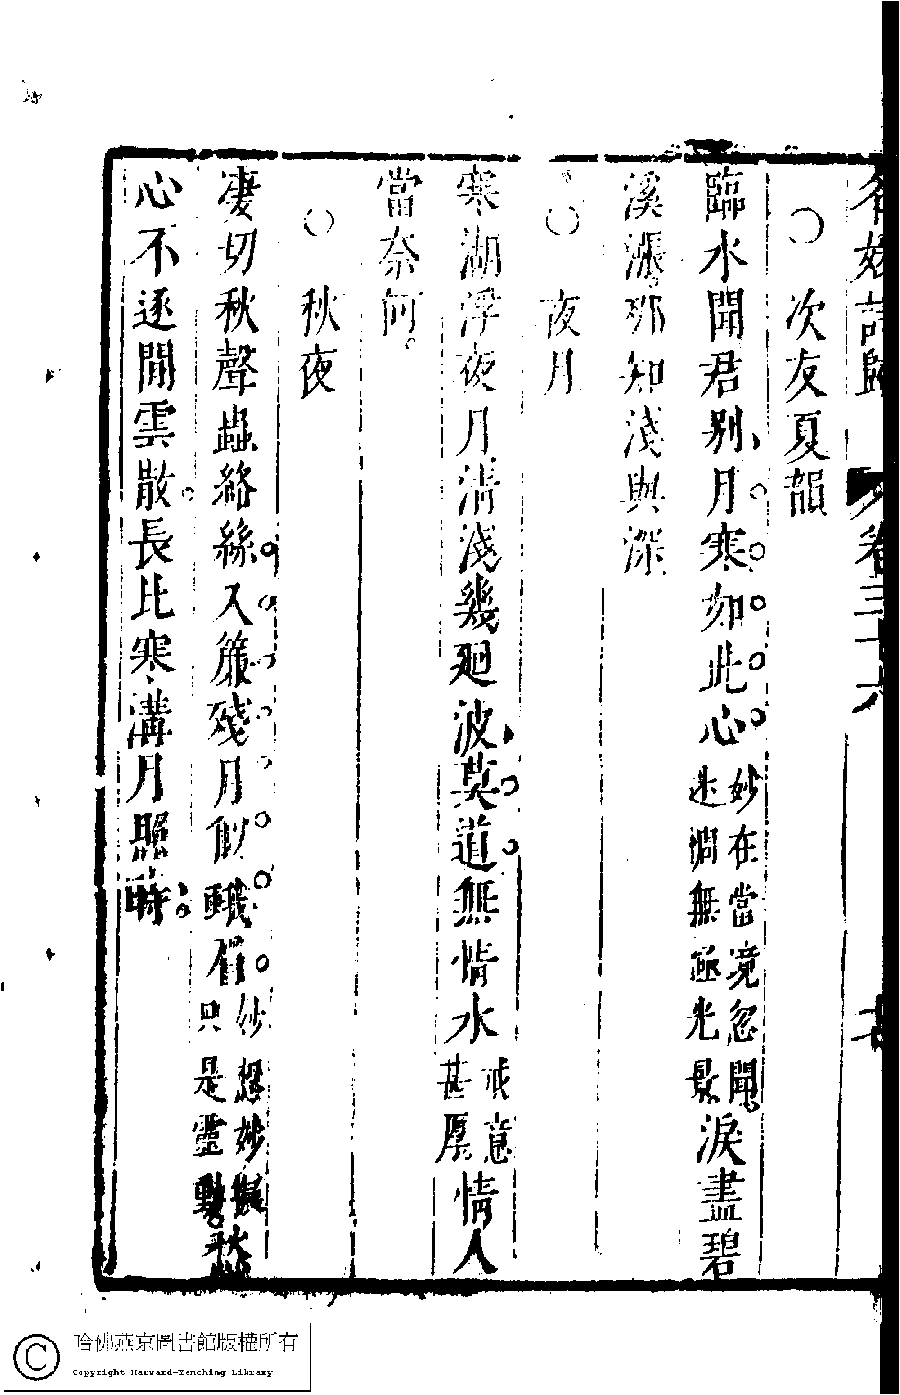 名媛詩歸 卷三十六
○ 次友夏韻
臨水聞君別月寒如此心妙在當竟忽聞迷惘無極光景淚盡碧
溪漲那知淺與深
○ 夜月
寒湖浮夜月清淺幾廻波莫道無情水戒意甚厚情人
當奈何。
○ 秋夜
凄切秋聲蟲絡絲入簾殘月似蛾眉妙想妙擬只是靈動愁
心不逐閒雲散長比寒溝月照時
哈佛燕京圖書館版權所有
Copyright Harvard-Yenching Library